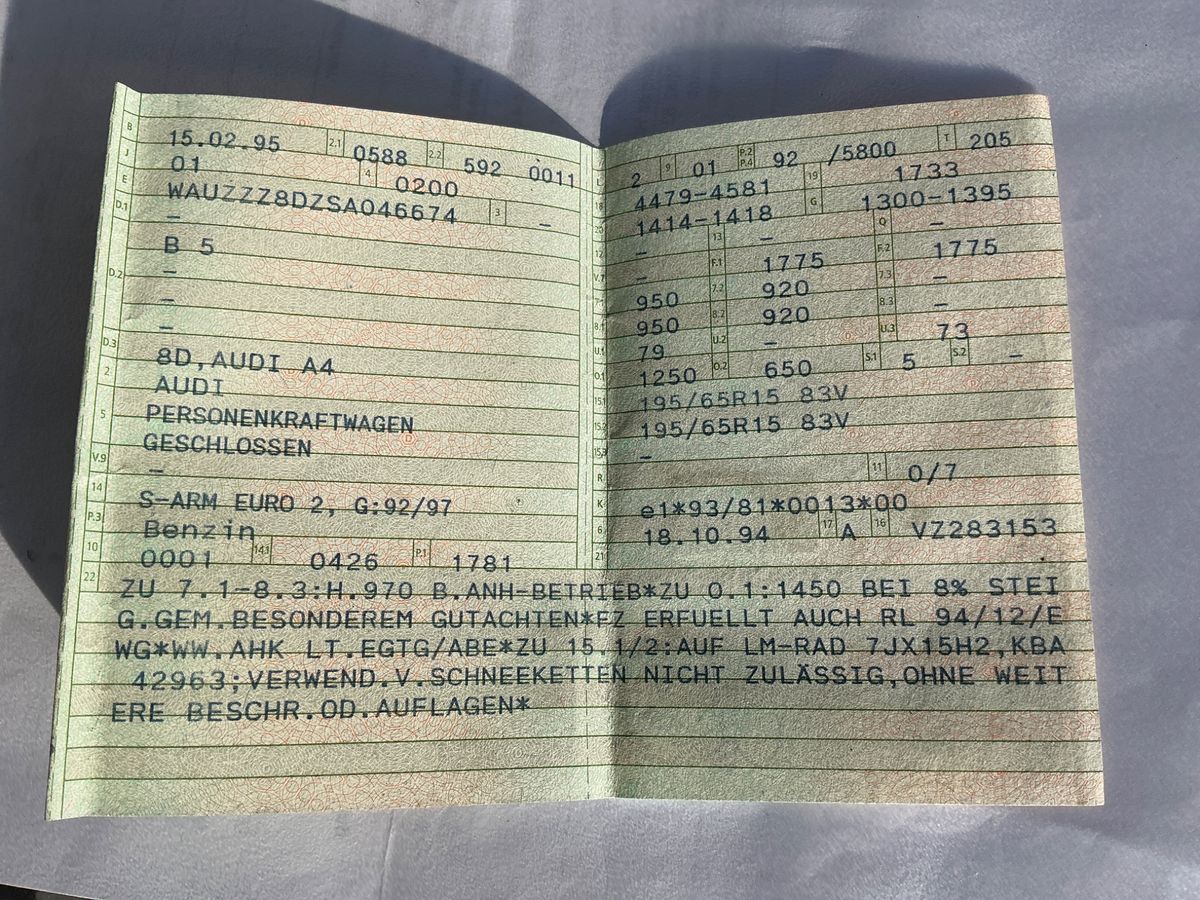 B 15.02.95 2.1 0588 2.2 592 0011
J 01 4 0200
E WAUZZZ8DZSA046674 3 –
D.1 –
B 5
D.2 –
–
–
D.3 8D,AUDI A4
2 AUDI
5 PERSONENKRAFTWAGEN
GESCHLOSSEN
V.9 –
14 S-ARM EURO 2, G:92/97
P.3 Benzin
10 0001 14.1 0426 P.1 1781
L 2 9 01 P.2 P.4 92 /5800 T 205
18 4479-4581 19 1733
20 1414-1418 G 1300-1395
12 – 13 – Q –
V.7 – F.1 1775 F.2 1775
7.1 950 7.2 920 7.3 –
8.1 950 8.2 920 8.3 –
U.1 79 U.2 – U.3 73
O.1 1250 O.2 650 S.1 5 S.2 –
15.1 195/65R15 83V
15.2 195/65R15 83V
15.3 –
R 11 0/7
K e1*93/81*0013*00
6 18.10.94 17 A 16 VZ283153
21
22 ZU 7.1-8.3:H.970 B.ANH-BETRIEB*ZU O.1:1450 BEI 8% STEI
G.GEM.BESONDEREM GUTACHTEN*FZ ERFUELLT AUCH RL 94/12/E
WG*WW.AHK LT.EGTG/ABE*ZU 15.1/2:AUF LM-RAD 7JX15H2,KBA
42963;VERWEND.V.SCHNEEKETTEN NICHT ZULÄSSIG,OHNE WEIT
ERE BESCHR.OD.AUFLAGEN*